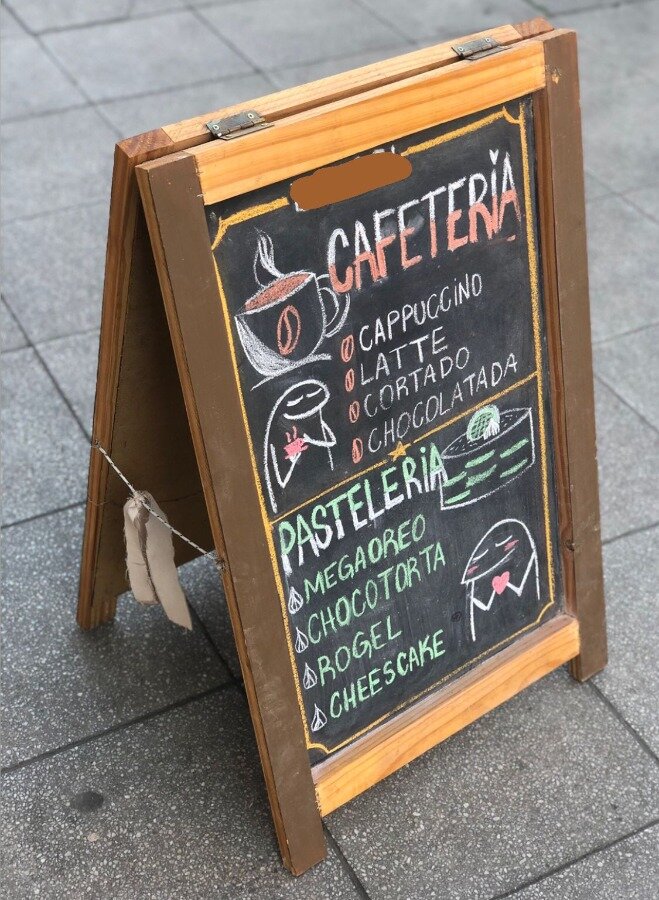 CAFETERIA
CAPPUCCINO
LATTE
CORTADO
CHOCOLATADA
PASTELERIA
MEGAOREO
CHOCOTORTA
ROGEL
CHEESCAKE